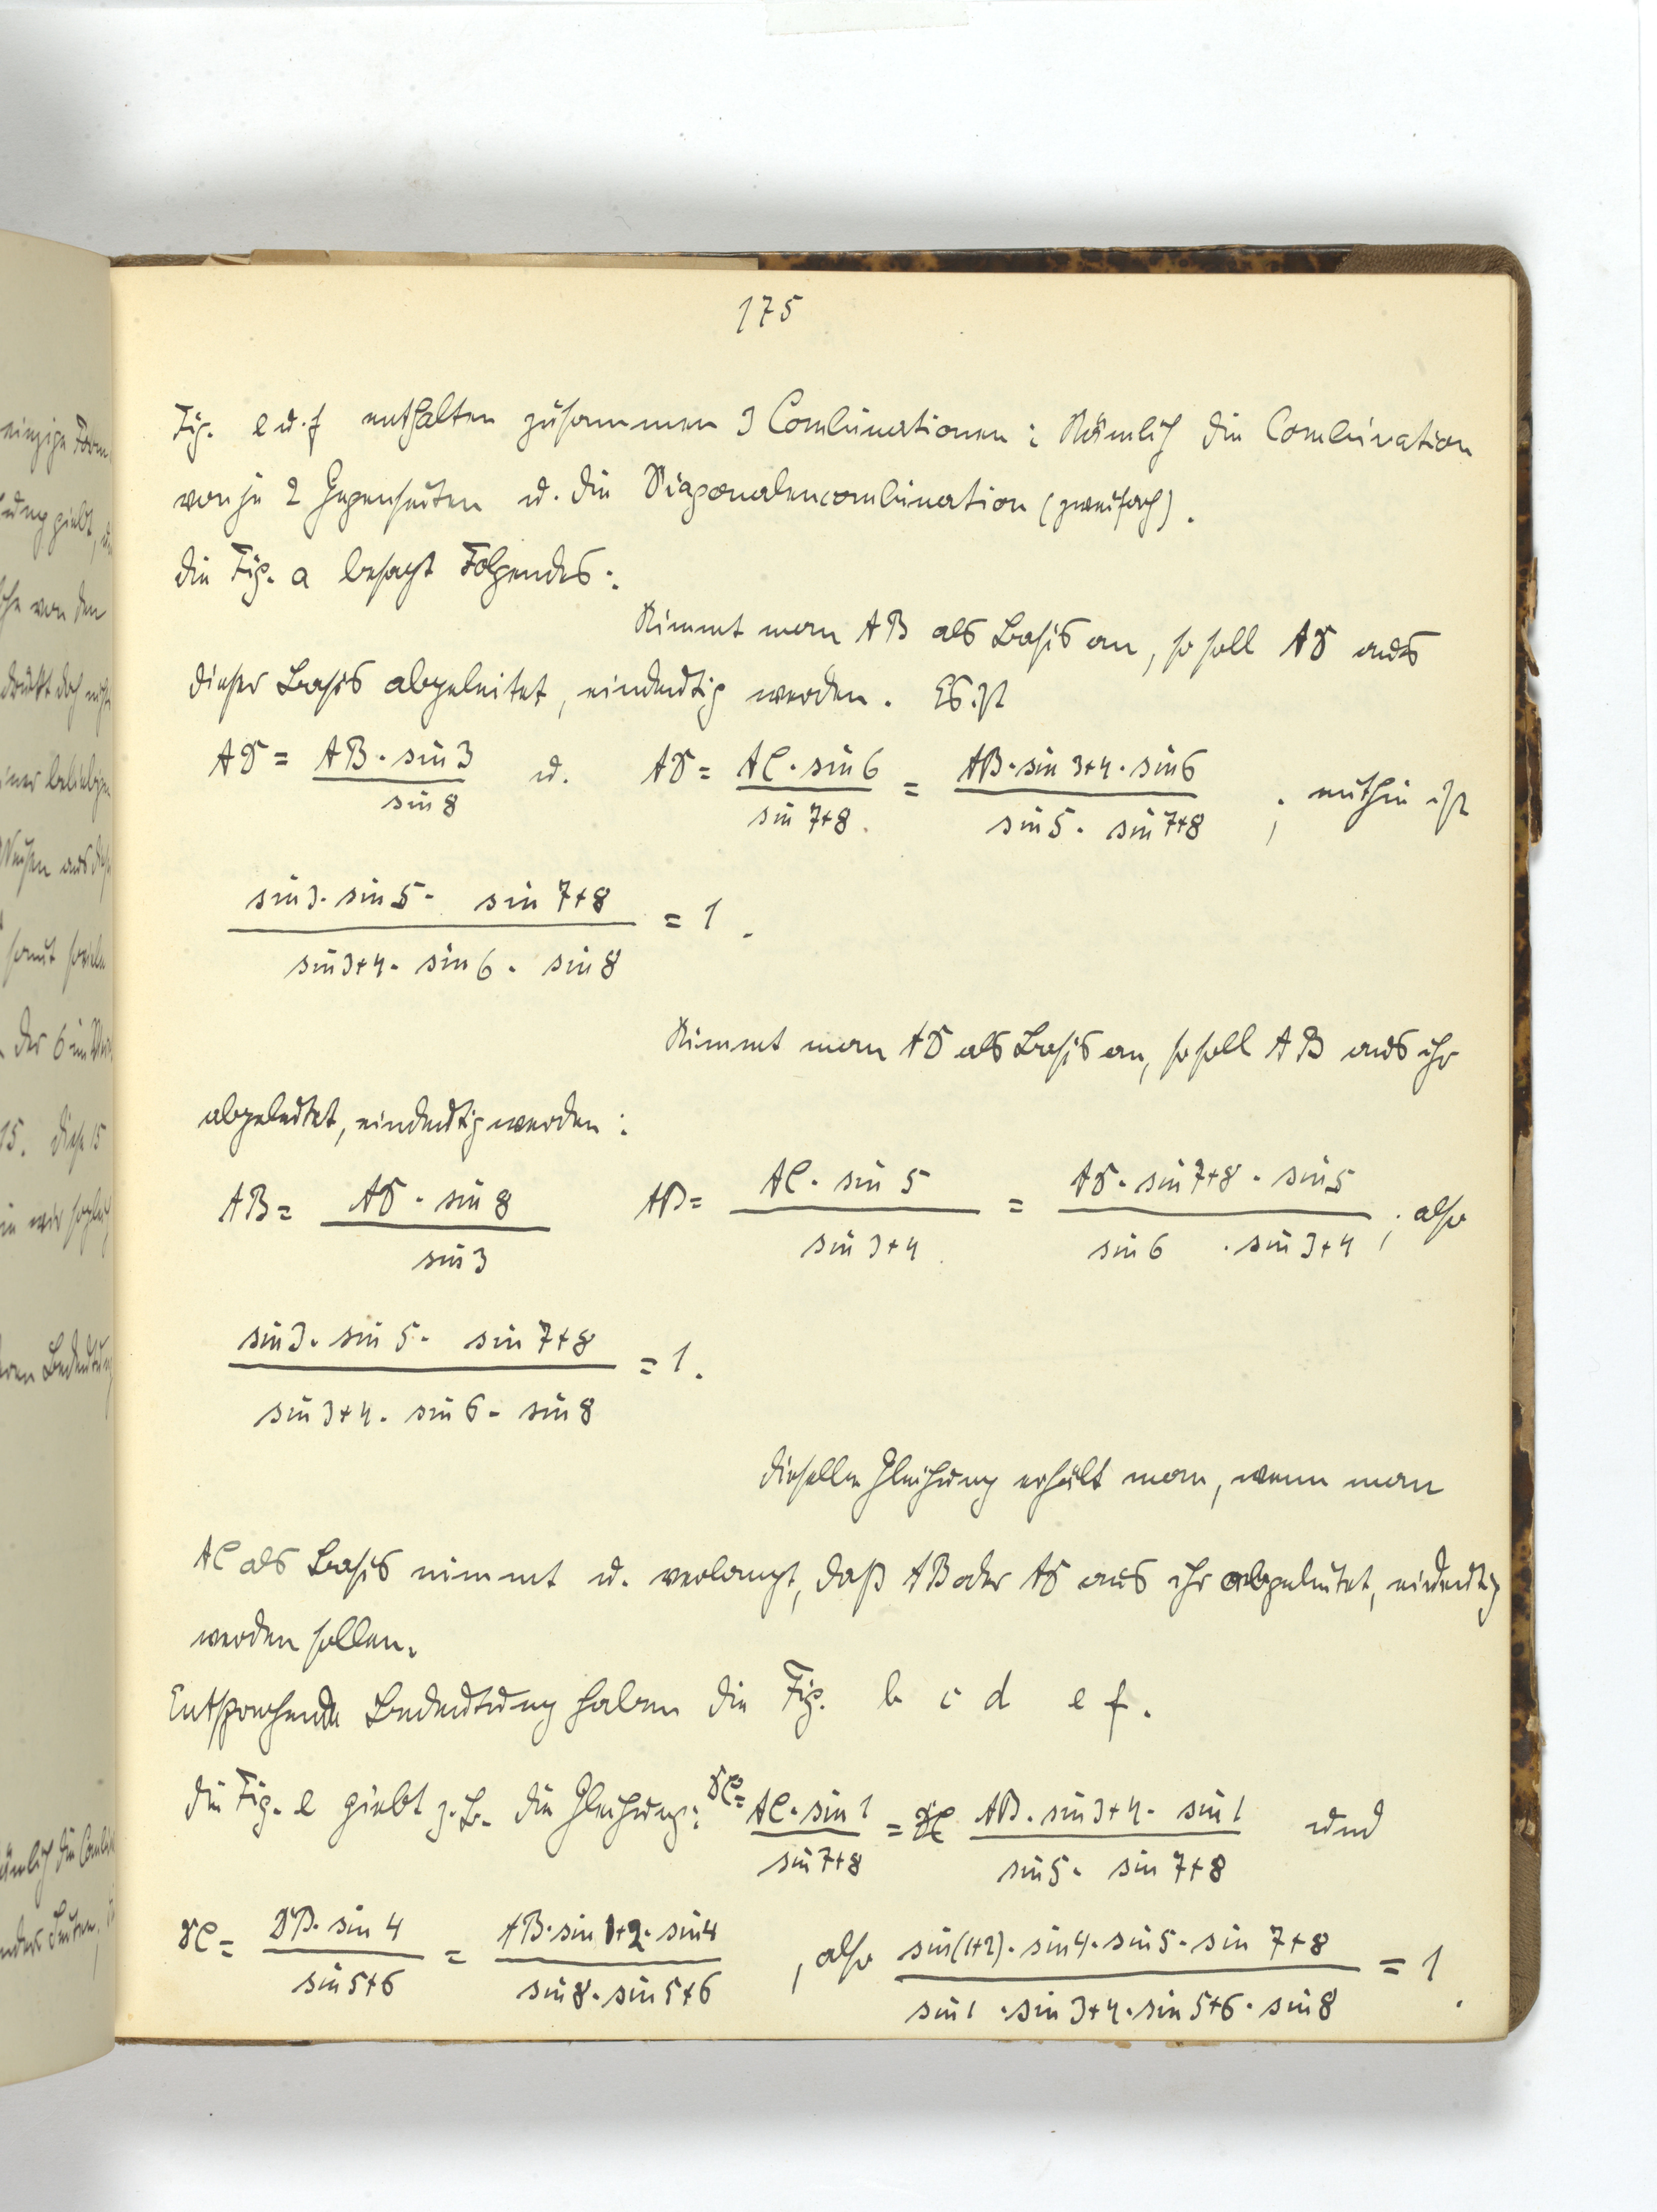 175
Fig. e u. f enthalten zusammen 3 Combinationen: Nämlich die Combination
von je 2 Gegenseiten u. die Diagonalencombination (zweifach).
Die Fig. a besagt Folgendes:
Nimmt man AB als Basis an, so soll AD aus
dieser Basis abgeleitet, eindeutig werden. Es ist
AD = AB · sin 3 / sin 8 u. AD = AC · sin 6 / sin 7+8 = AB · sin 3+4 · sin 6 / sin 5 · sin 7+8 ; mithin ist
sin 3 · sin 5 · sin 7+8 / sin 3+4 · sin 6 · sin 8 = 1.
Nimmt man AD als Basis an, so soll AB aus ihr
abgeleitet, eindeutig werden:
AB = AD · sin 8 / sin 3 AB = AC · sin 5 / sin 3+4 = AD · sin 7+8 · sin 5 / sin 6 · sin 3+4 ; also
sin 3 · sin 5 · sin 7+8 / sin 3+4 · sin 6 · sin 8 = 1.
Dieselbe Gleichung erhält man, wenn man
AC als Basis nimmt u. verlangt, daß AB oder AD aus ihr abgeleitet, eindeutig
werden sollen.
Entsprechende Bedeutung haben die Fig. b c d e f.
Die Fig. e giebt z. B. die Gleichung: DC = AC · sin 1 / sin 7+8 = AB · sin 3+4 · sin 1 / sin 5 · sin 7+8 und
DC = DB · sin 4 / sin 5+6 = AB · sin 1+2 · sin 4 / sin 8 · sin 5+6 , also sin (1+2) · sin 4 · sin 5 · sin 7+8 / sin 1 · sin 3+4 · sin 5+6 · sin 8 = 1.